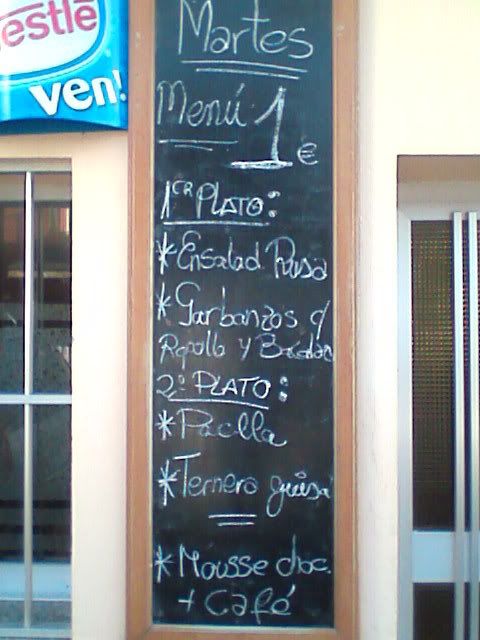 Nestlé
ven!
Martes
Menú 1 €
1er PLATO:
*Ensalad Rusa
*Garbanzos c/
Repollo y
2º PLATO:
*Paella
*Ternera guisa
*Mousse choc.
+ Café